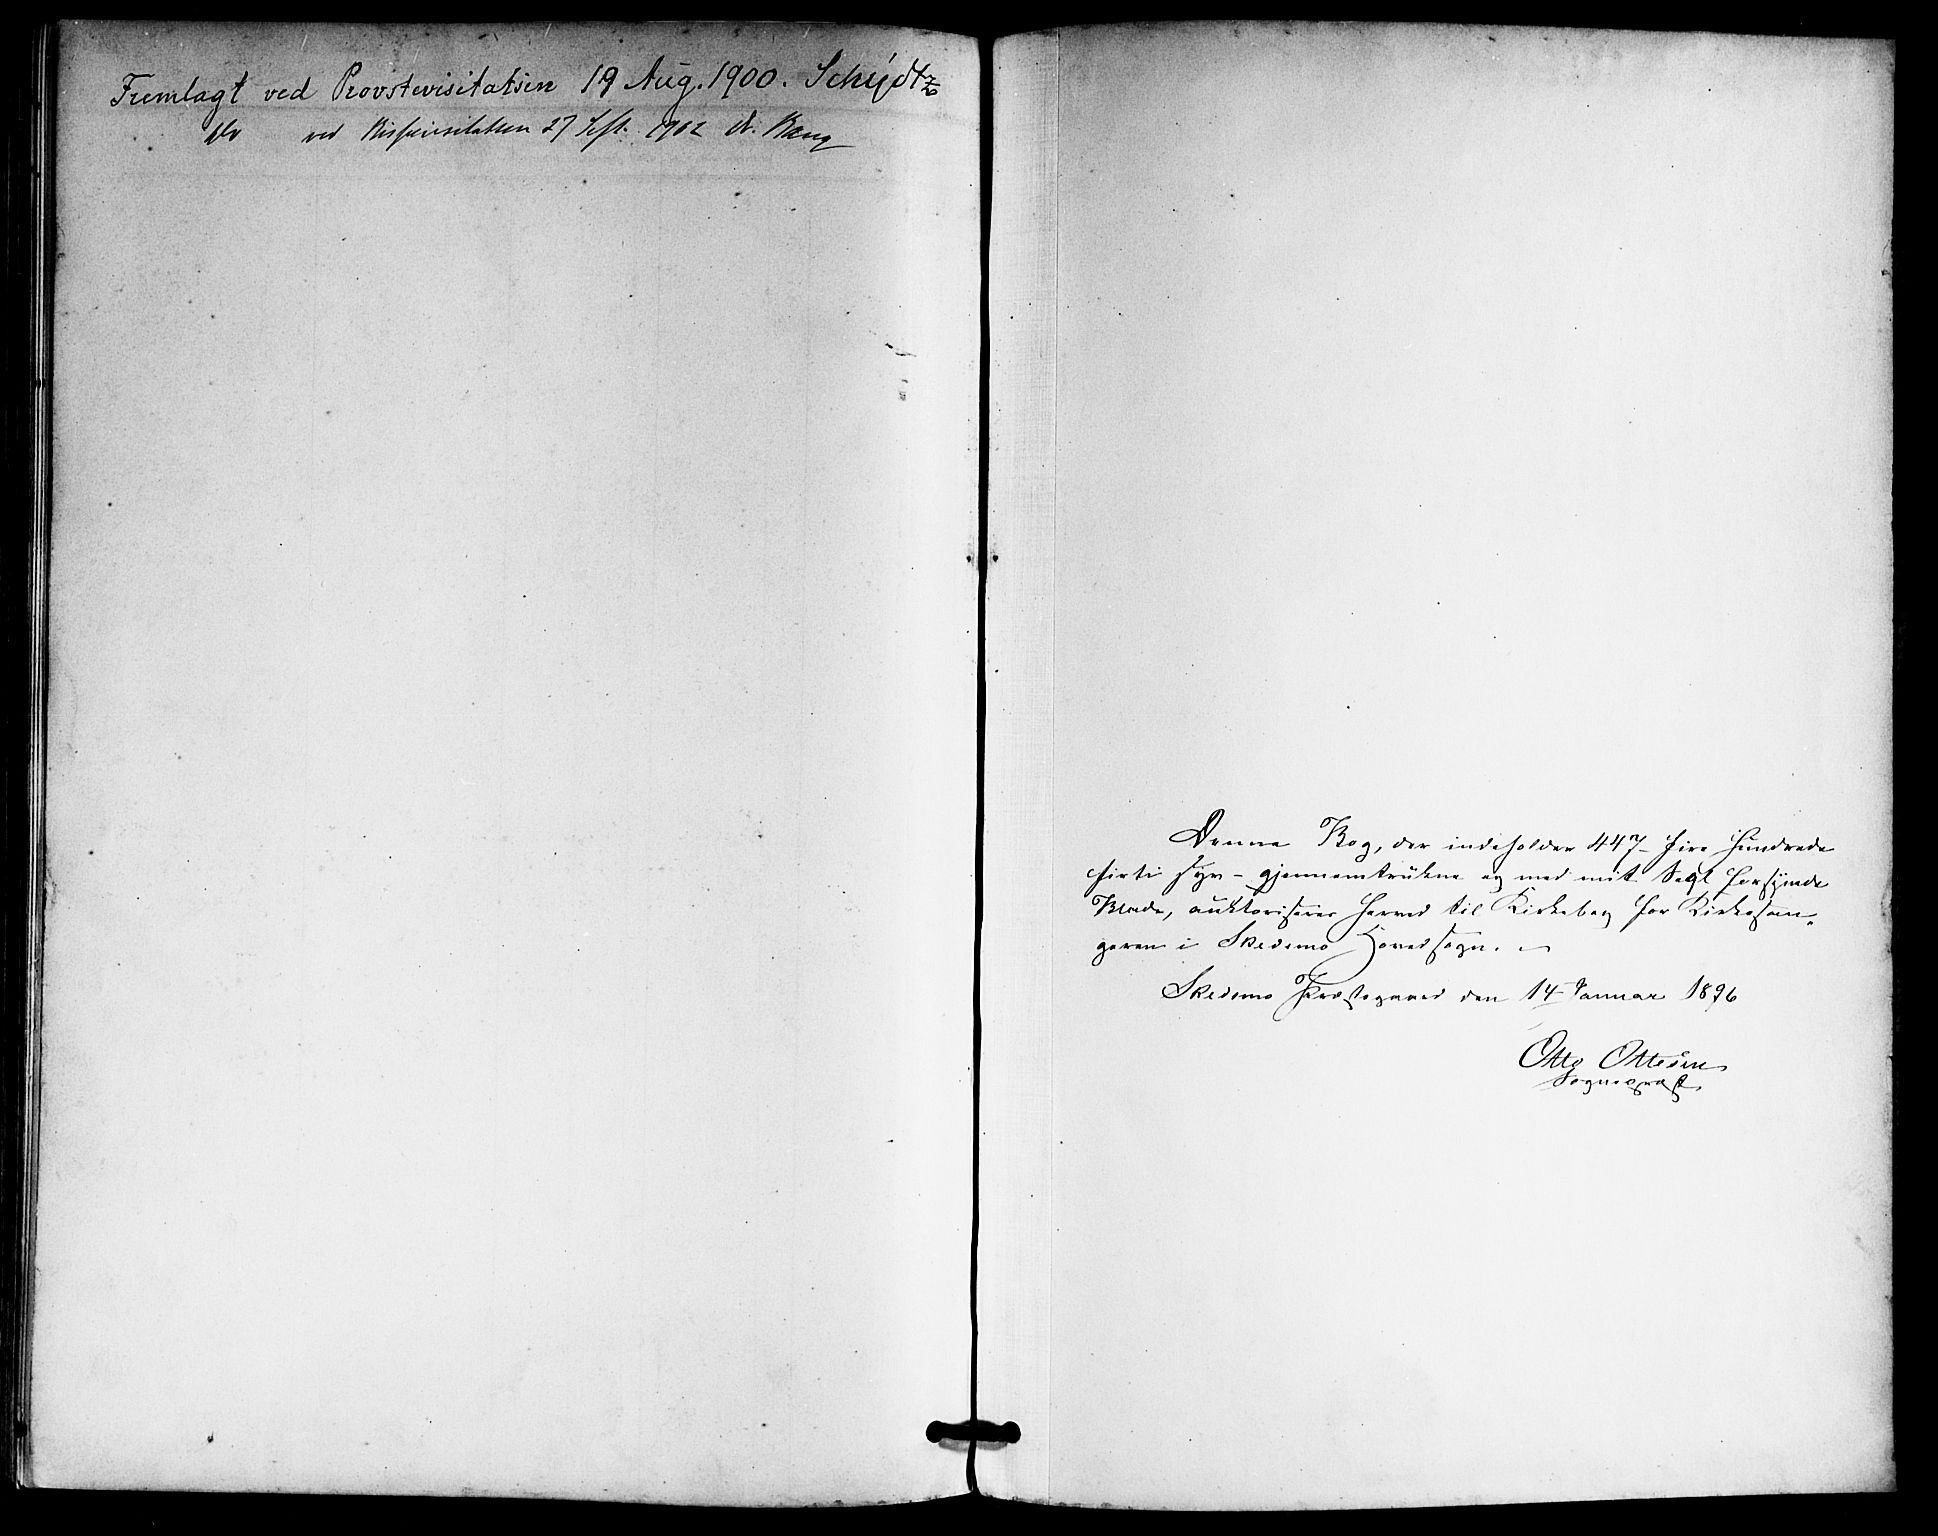 Fremlagt ved Provstevisitatsen 19 Aug. 1900. Schiødtz
do ved Bispevisitatsen 27 Sept. 1902 A. Bang
Denne Bog, der indeholder 447 – fire Hundrede
firti syv – gjennemtrukne og med mit Segl forsynede
Blade, auktoriseres herved til Kirkebog for Kirkesan-
geren i Skedsmo Hovedsogn. –
Skedsmo Præstegaard den 14 Januar 1896
Otto Ottesen
Sogneprest